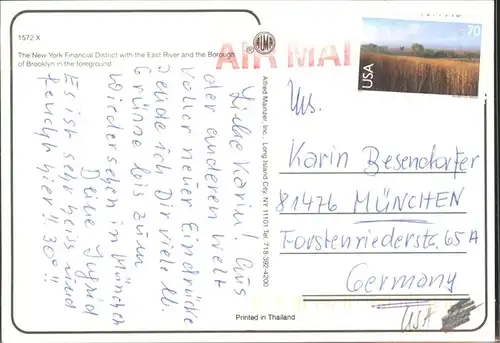 1572 X
The New York Financial District with the East River and the Borough
of Brooklyn in the foreground
AIR MAI
ALMA
70
USA
Alfred Mainzer Inc., Long Island City, NY 11101 Tel. 718-392-4200
Liebe Karin! Aus
der anderen Welt
voller neuer Eindrücke
sende ich Dir viele ll.
Grüsse bis zum
Wiedersehen in München
Deine Ingrid
Es ist sehr heiss und
feucht hier!! 30°!!
Ms.
Karin Besendorfer
81476 MÜNCHEN
Forstenriederstr. 65 A
Germany
USA
Printed in Thailand